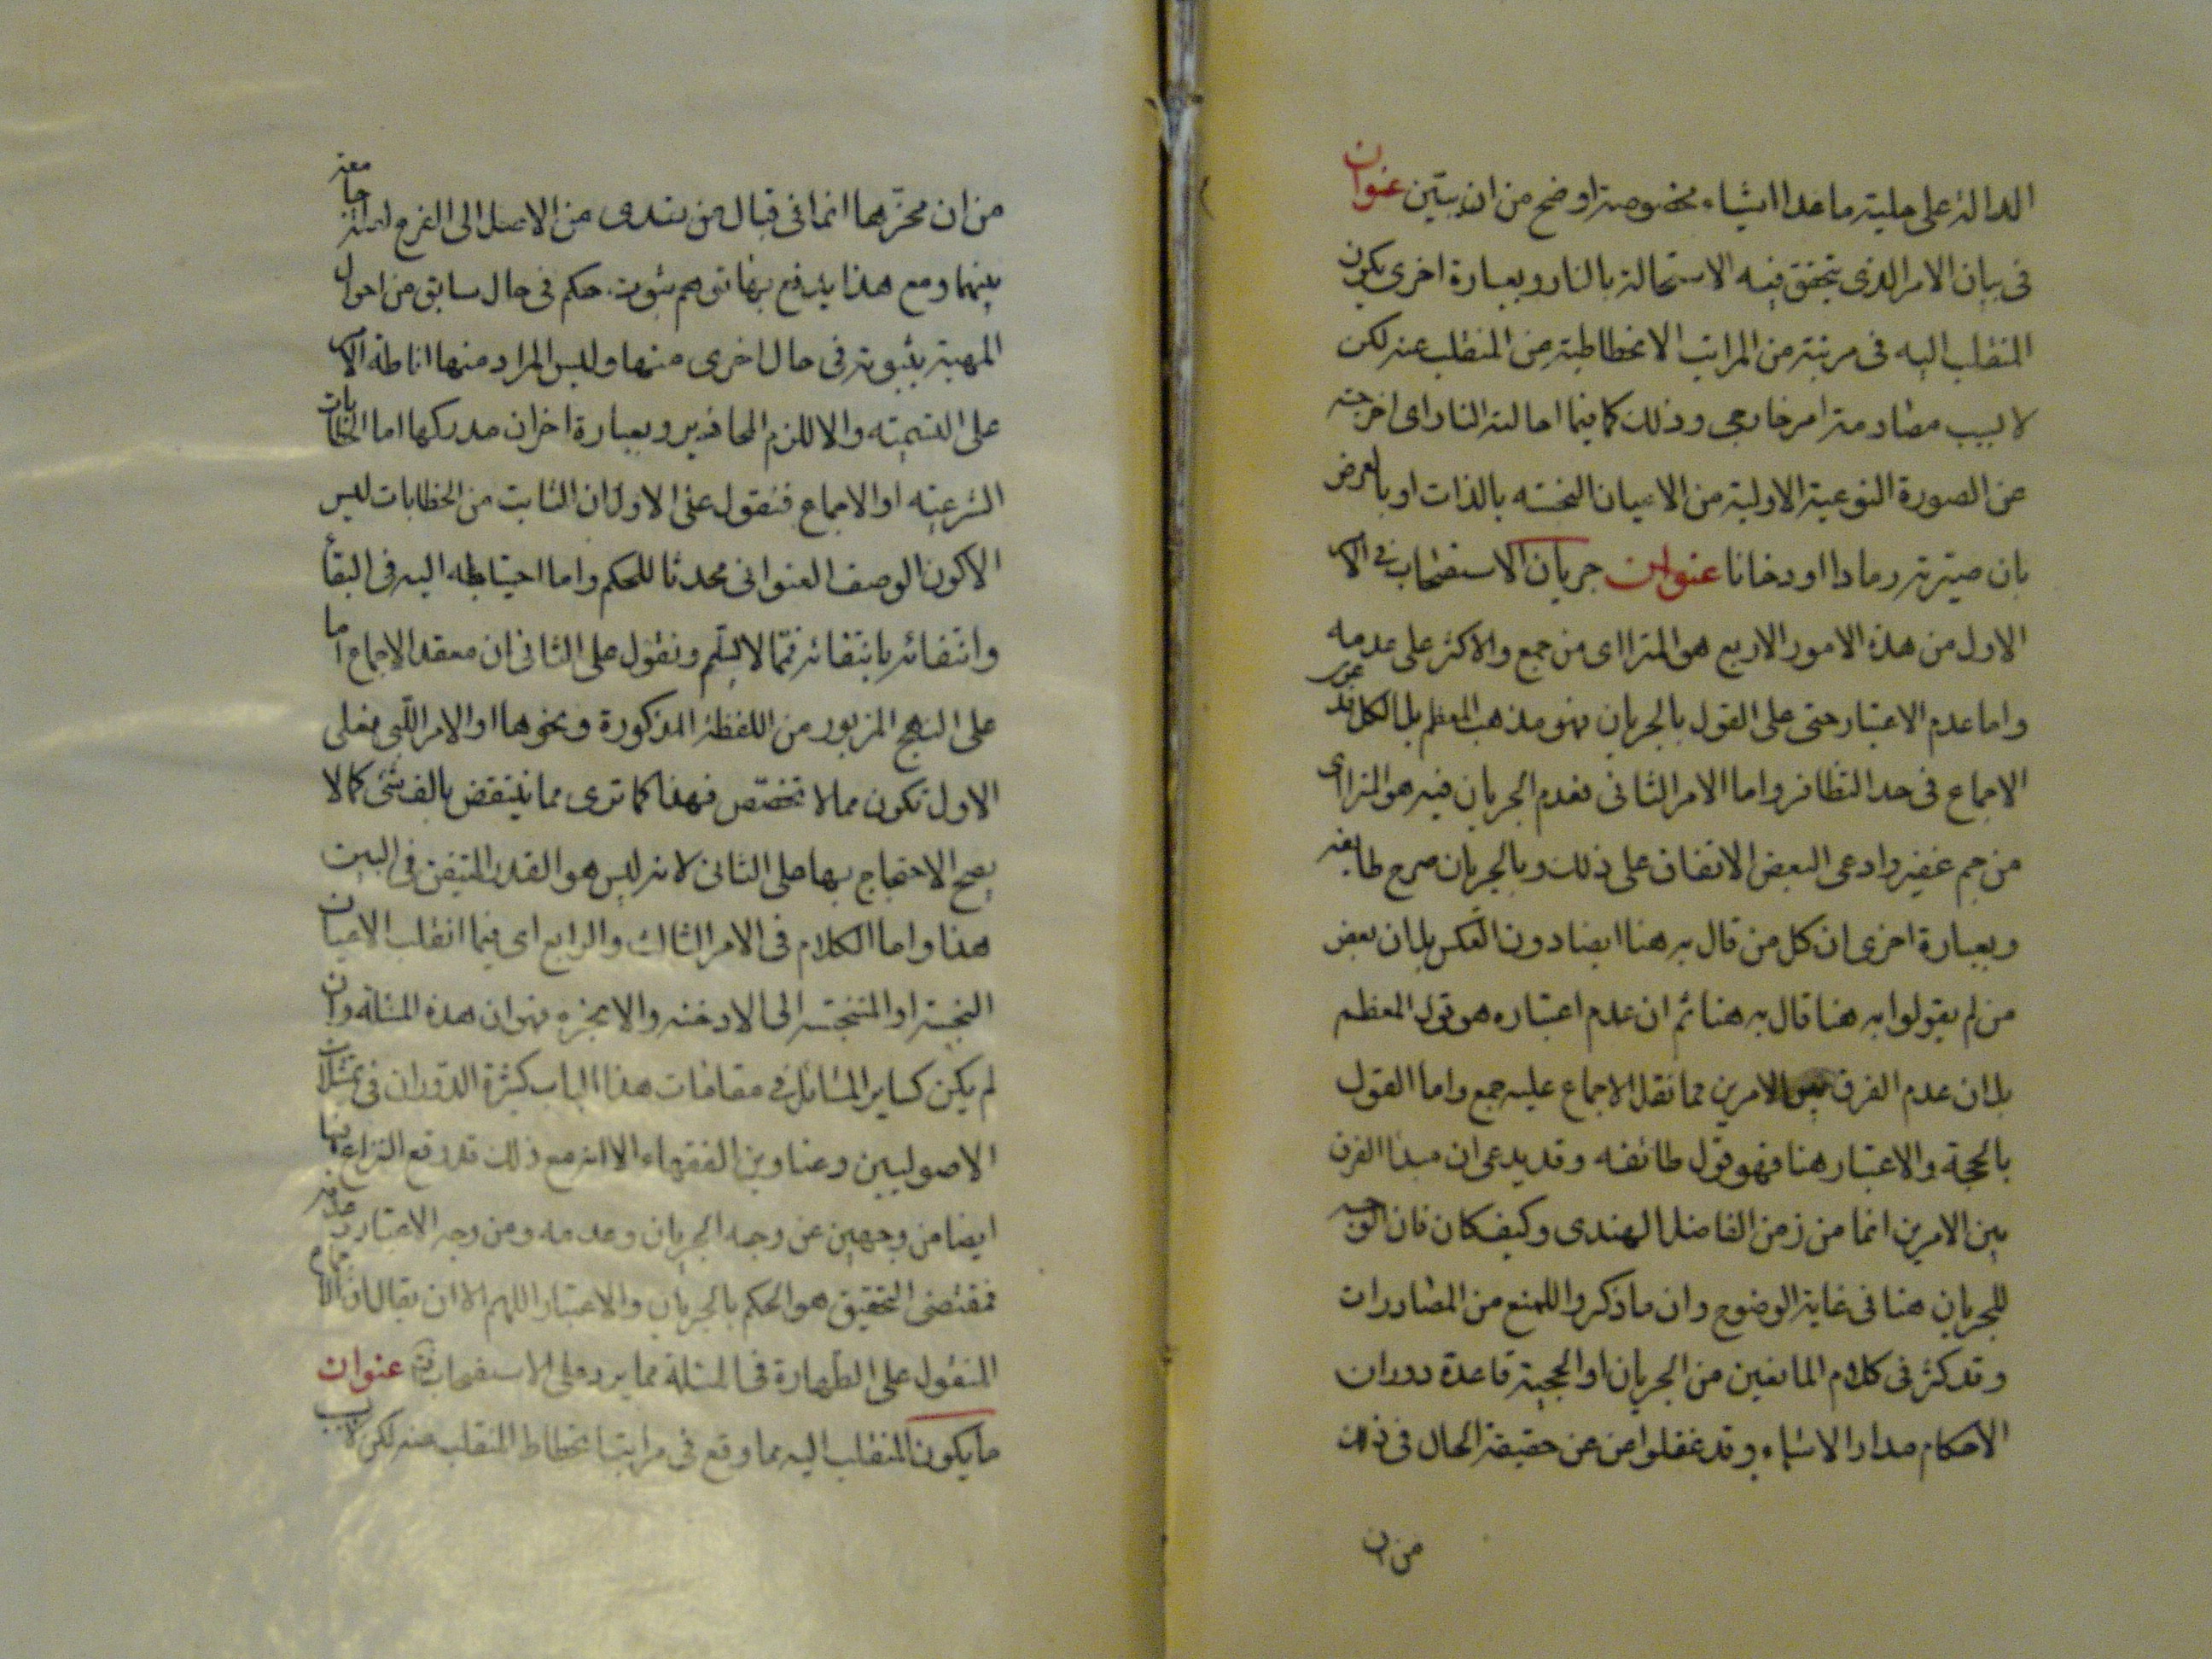 الدالة على حلية ما عدا اشياء مخصوصة اوضح من ان يبين عنوان
فى بيان الامر الذى يتحقق فيه الاستحالة بالنار وبعبارة اخرى يكون
المنقلب اليه فى مرتبة من المراتب الانحطاطية من المنقلب عنه لكن
لا بسبب مصادمة امر خارجى وذلك كما فيما احالته النار اى اخرجته
عن الصورة النوعية الاولية من الاعيان النجسة بالذات او بالعرض
بان صيرته رمادا او دخانا عنوان جريان الاستصحاب فى
الاول من هذه الامور الاربع هو المتراءى من جمع والاكثر على عدمه
واما عدم الاعتبار حتى على القول بالجريان فهو مذهب المعظم بل الكل
الاجماع فى حد التظافر واما الامر الثانى فعدم الجريان فيه هو المتراءى
من جم غفير وادعى البعض الاتفاق على ذلك وبالجريان صرح طايفه
وبعبارة اخرى ان كل من قال به هنا ايضا دون العكس بل ان بعض
من لم يقولوا به هنا قال به هنا ثم ان عدم اعتباره هو قول المعظم
بل ان عدم الفرق بين الامرين مما نقل الاجماع عليه جمع واما القول
بالحجة والاعتبار هنا فهو قول طائفه وقد يدعى ان مبدا الفرق
بين الامرين انما من زمن الفاضل الهندى وكيف كان فان الوجه
للجريان هنا فى غاية الوضوح وان ما ذكروا للمنع من المصادرات
وقد كثر فى كلام المانعين من الجريان او الحجية قاعدة دوران
الاحكام مدار الاسماء وقد غفلوا عن حقيقة الحال فى ذلك
من ان
من ان محزهما انما فى قبال من يتعدى من الاصل الى الفرع
بينهما ومع هذا يندفع بها توهم ثبوت حكم فى حال سابق من احوال
المهية بثبوته فى حال اخرى منها وليس المراد منها اناطة
على التسمية والا للزم المحاذير وبعبارة اخرى ان مدركها اما الخطابات
الشرعية او الاجماع فنقول على الاول ان الثابت من الخطابات ليس
الا كون الوصف العنوانى محدثا للحكم واما احتياطه اليه فى البقاء
وانتفائه بانتفائه فمما لا يسلم ونقول على الثانى ان معقد الاجماع اما
على النهج المزبور من اللفظة المذكورة ونحوها او الامر اللبى فعلى
الاول تكون مما لا تخصص فهذا كما ترى مما ينتقض بالف شئ كما لا
يصح الاحتجاج بها على الثانى لانه ليس هو القدر المتيقن فى البين
هذا واما الكلام فى الامر الثالث والرابع اى فيما انقلب الاعيان
النجسة او المتنجسه الى الادخنه والابخره فهو ان هذه المسئلة وان
لم يكن كساير المسائل فى مقامات هذا الباب كثرة الدوران فى
الاصوليين وعناوين الفقهاء الا انه مع ذلك قد وقع النزاع فيها
ايضا من وجهين عن وجه الجريان وعدمه ومن وجه الاعتبار وعدمه
فمقتضى التحقيق هو الحكم بالجريان والاعتبار اللهم الا ان يقال ان الاجماع
المنقول على الطهارة فى المسئلة مما يرد على الاستصحاب عنوان
ما يكون المنقلب اليه مما وقع فى مراتب انحطاط المنقلب عنه لكن لا بسبب